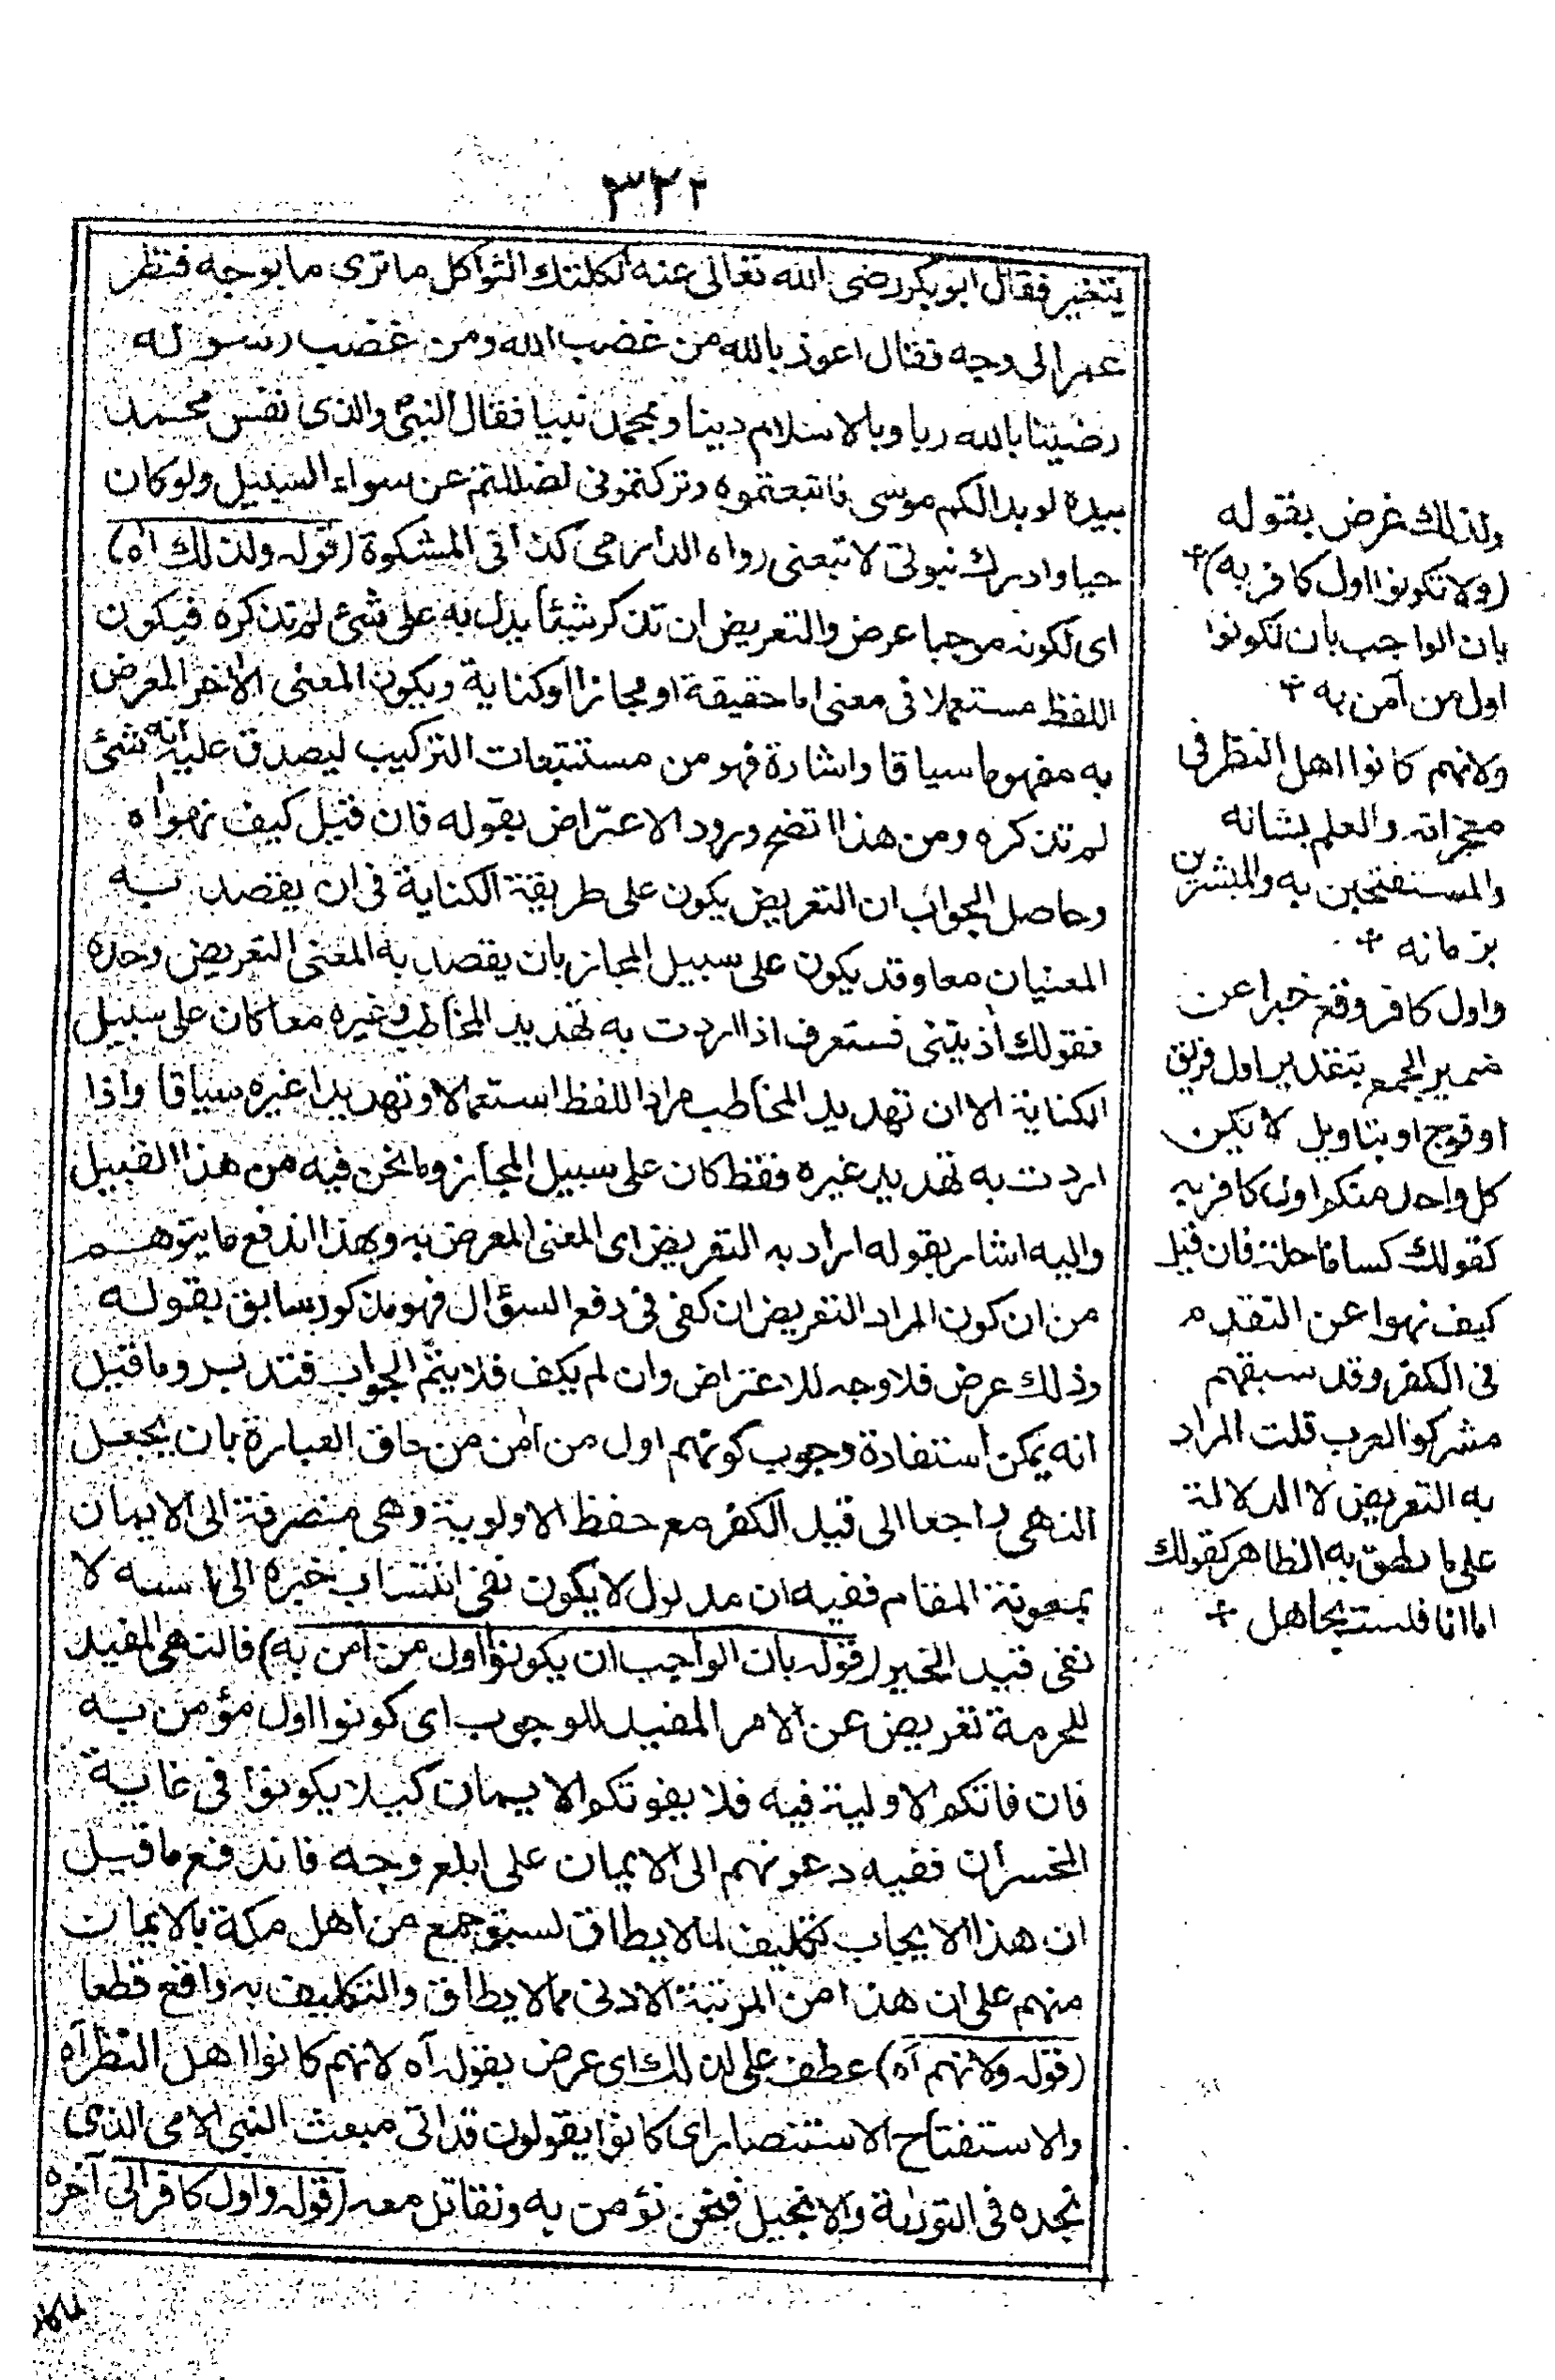 ٣٢٢
يتغير فقال ابو بكر رضى الله تعالى عنه ثكلتك الثواكل ما ترى ما بوجه فنظر
عمر الى وجه فقال اعوذ بالله من غضب الله ومن غضب رسوله
رضينا بالله ربا وبالاسلام دينا وبمحمد نبيا فقال النبى والذى نفس محمد
بيده لو بدا لكم موسى فاتبعتموه وتركتمونى لضللتم عن سواء السبيل ولو كان
حيا وادرك نبوتى لاتبعنى رواه الدارمى كذا فى المشكوة (قوله ولذلك اه)
اى لكونه موجبا عرض والتعريض ان تذكر شيئا يدل به على شئ لم تذكره فيكون
اللفظ مستعملا فى معنى اما حقيقة او مجازا او كناية ويكون المعنى الاخر المعرض
به مفهوما سياقا واشارة فهو من مستتبعات التركيب ليصدق عليه انه شئ
لم تذكره ومن هذا اتضح ورود الاعتراض بقوله فان قيل كيف نهوا اه
وحاصل الجواب ان التعريض يكون على طريقة الكناية فى ان يقصد به
المعنيان معا وقد يكون على سبيل المجاز بان يقصد به المعنى التعريض وحده
فقولك أذيتنى فستعرف اذا اردت به تهديد المخاطب وغيره معا كان على سبيل
الكناية الا ان تهديد المخاطب مراد اللفظ استعمالا وتهديدا غيره سياقا واذا
اردت به تهديد غيره فقط كان على سبيل المجاز وما نحن فيه من هذا القبيل
واليه اشار بقوله اراد به التعريض اى المعنى المعرض به وبهذا اندفع ما يتوهم
من ان كون المراد التعريض ان كفى فى دفع السؤال فهو مذكور سابق بقوله
وذلك عرض فلا وجه للاعتراض وان لم يكف فلا يتم الجواب فتدبر وما قيل
انه يمكن استفادة وجوب كونهم اول من امن من حاق العبارة بان يجعل
النهى راجعا الى قيد الكفر مع حفظ الاولوية وهى منصرفة الى الايمان
بمعونة المقام ففيه ان مدلول لا يكون نفى انتساب خبره الى اسمه لا
نفى قيد الخبر (قوله بان الواجب ان يكونوا اول من امن به) فالنهى المفيد
للحرمة تعريض عن الامر المفيد للوجوب اى كونوا اول مؤمن به
فان فاتكم الاولية فيه فلا يفوتكم الايمان كيلا يكونوا فى غاية
الخسران ففيه دعوتهم الى الايمان على ابلغ وجه فاندفع ما قيل
ان هذا الايجاب تكليف لما لا يطاق لسبق جمع من اهل مكة بالايمان
منهم على ان هذا من المرتبة الادنى مما لا يطاق والتكليف به واقع قطعا
(قوله ولانهم اه) عطف على لذلك اى عرض بقوله آه لانهم كانوا اهل النظر آه
والاستفتاح الاستنصار اى كانوا يقولون قد اتى مبعث النبى الامى الذى
نجده فى التورية والانجيل فنحن نؤمن به ونقاتل معه (قوله واول كافر الى آخره
ولذلك عرض بقوله
(ولا تكونوا اول كافر به) +
بان الواجب بان تكونوا
اول من آمن به +
ولانهم كانوا اهل النظر فى
معجزاته والعلم بشانه
والمستفتحين به والمبشرين
بزمانه +
واول كافر وقع خبرا عن
ضمير الجمع بتقدير اول فريق
او فوج او بتاويل لا يكن
كل واحد منكم اول كافر به
كقولك كسانا حلة فان قيل
كيف نهوا عن التقدم
فى الكفر وقد سبقهم
مشركوا العرب قلت المراد
به التعريض لا الدلالة
على ما نطق به الظاهر كقولك
اما انا فلست بجاهل +